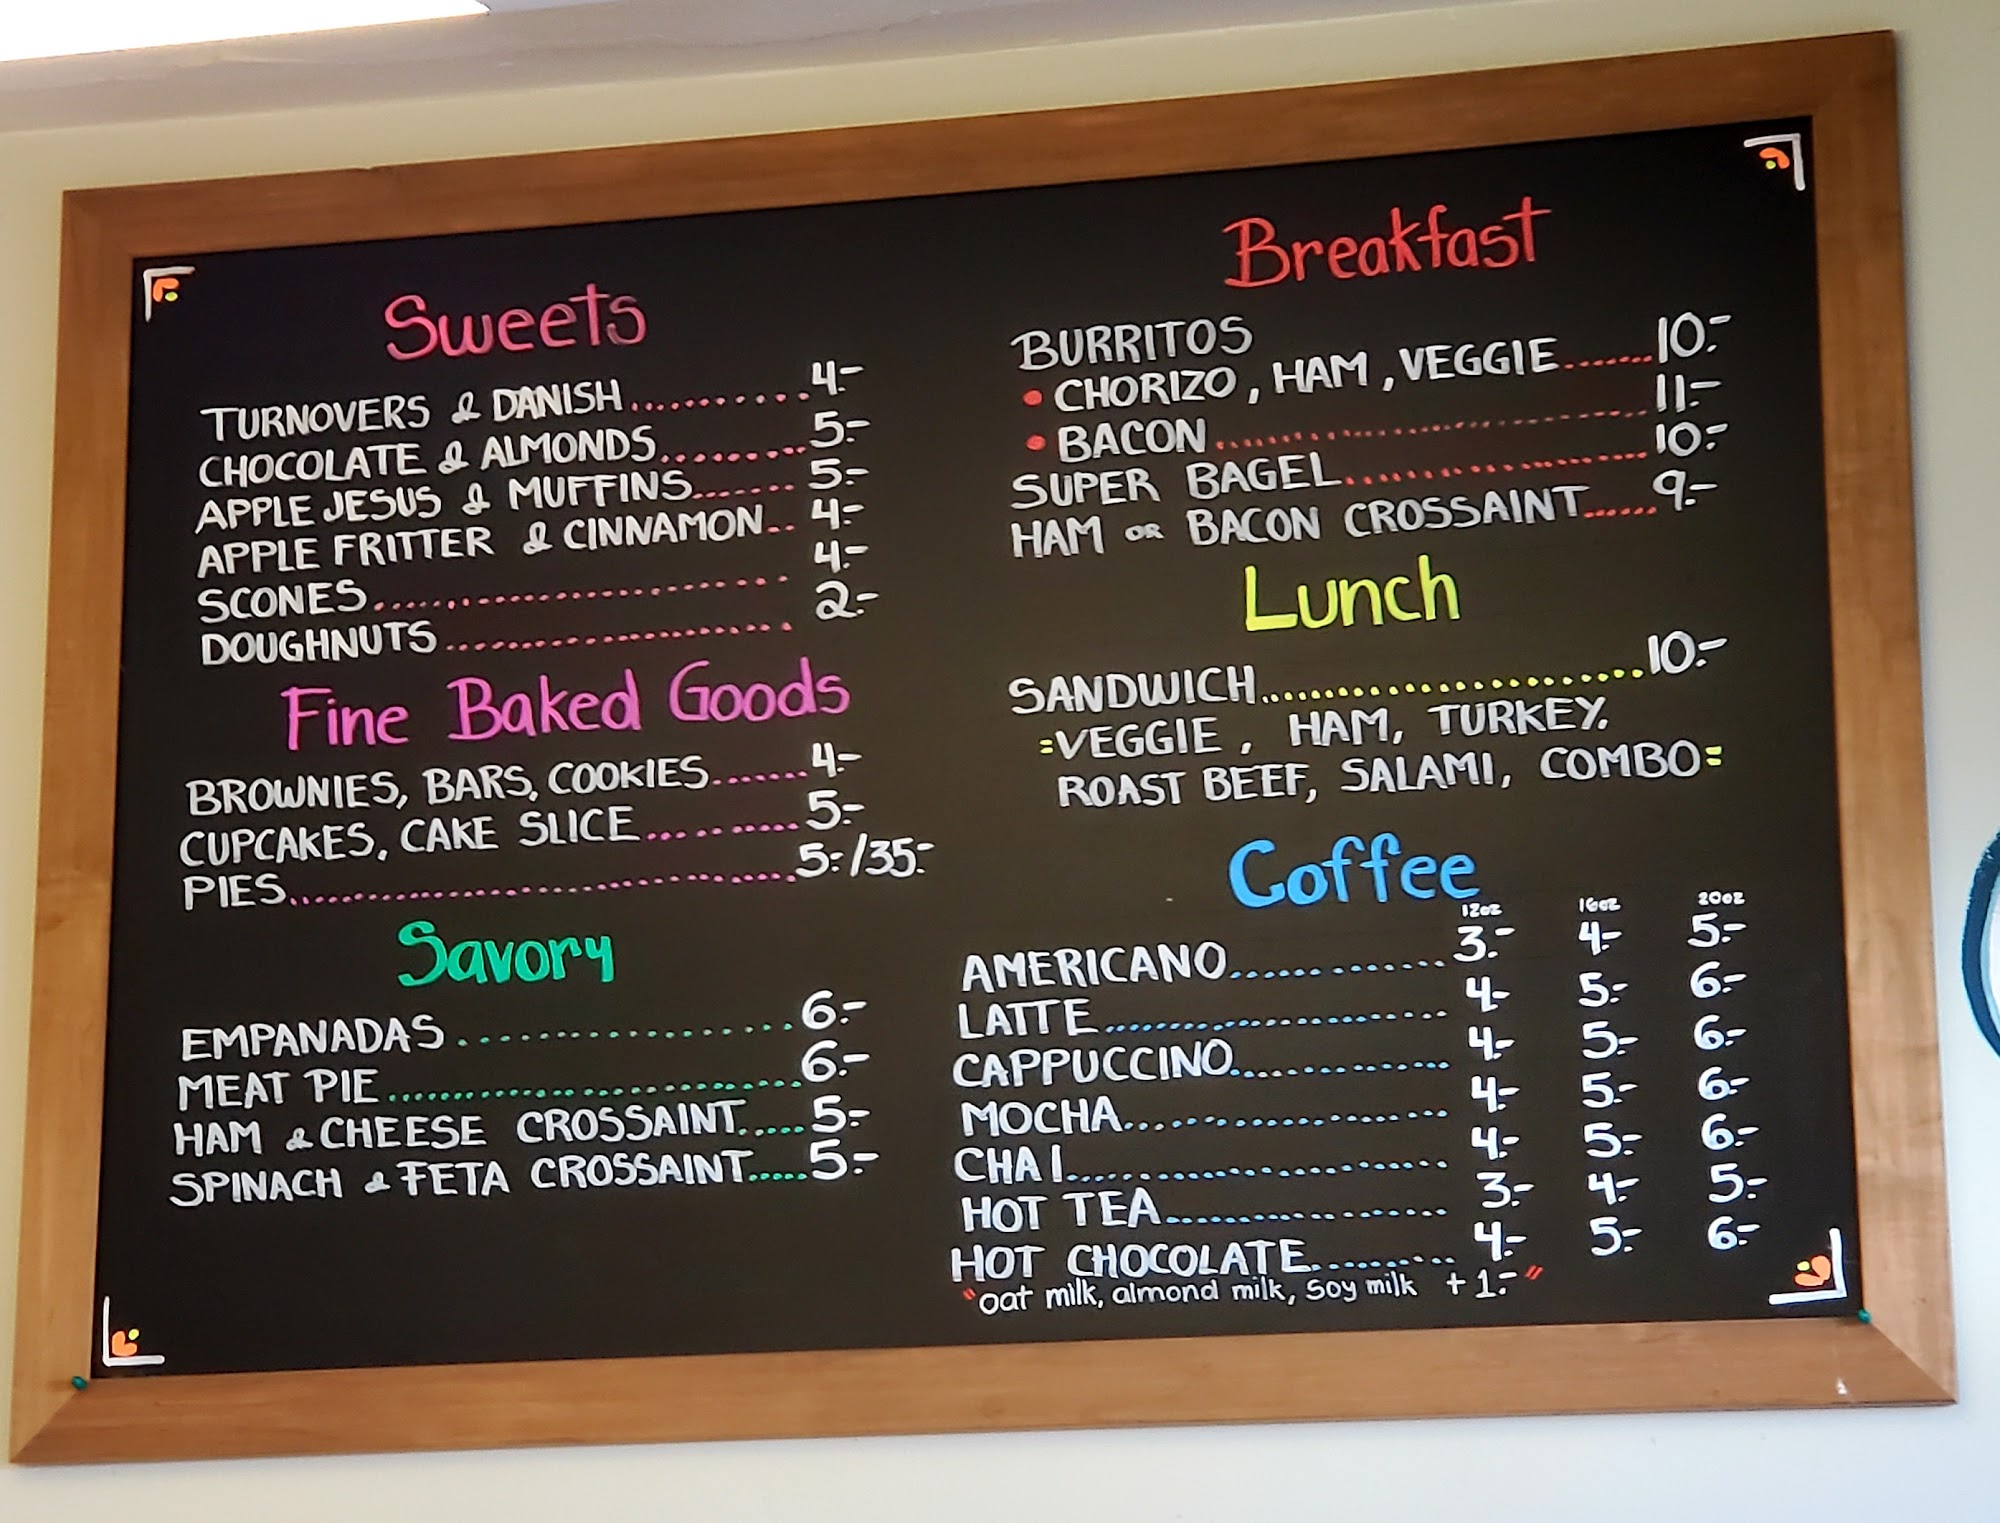 Sweets
TURNOVERS & DANISH..........4.-
CHOCOLATE & ALMONDS.........5.-
APPLE JESUS & MUFFINS.......5.-
APPLE FRITTER & CINNAMON..4.-
SCONES..........................4.-
DOUGHNUTS.......................2.-
Fine Baked Goods
BROWNIES, BARS, COOKIES.......4.-
CUPCAKES, CAKE SLICE..........5.-
PIES..............................5.-/35.-
Savory
EMPANADAS...................6.-
MEAT PIE..........................6.-
HAM & CHEESE CROSSAINT......5.-
SPINACH & FETA CROSSAINT.....5.-
Breakfast
BURRITOS
• CHORIZO, HAM, VEGGIE.......10.-
• BACON..........................11.-
SUPER BAGEL....................10.-
HAM OR BACON CROSSAINT......9.-
Lunch
SANDWICH........................10.-
=VEGGIE, HAM, TURKEY.
ROAST BEEF, SALAMI, COMBO=
Coffee
12oz 16oz 20oz
AMERICANO.............3.- 4.- 5.-
LATTE.......................4.- 5.- 6.-
CAPPUCCINO.............4.- 5.- 6.-
MOCHA.....................4.- 5.- 6.-
CHAI.........................4.- 5.- 6.-
HOT TEA..................3.- 4.- 5.-
HOT CHOCOLATE.........4.- 5.- 6.-
"oat milk, almond milk, soy milk +1.-"